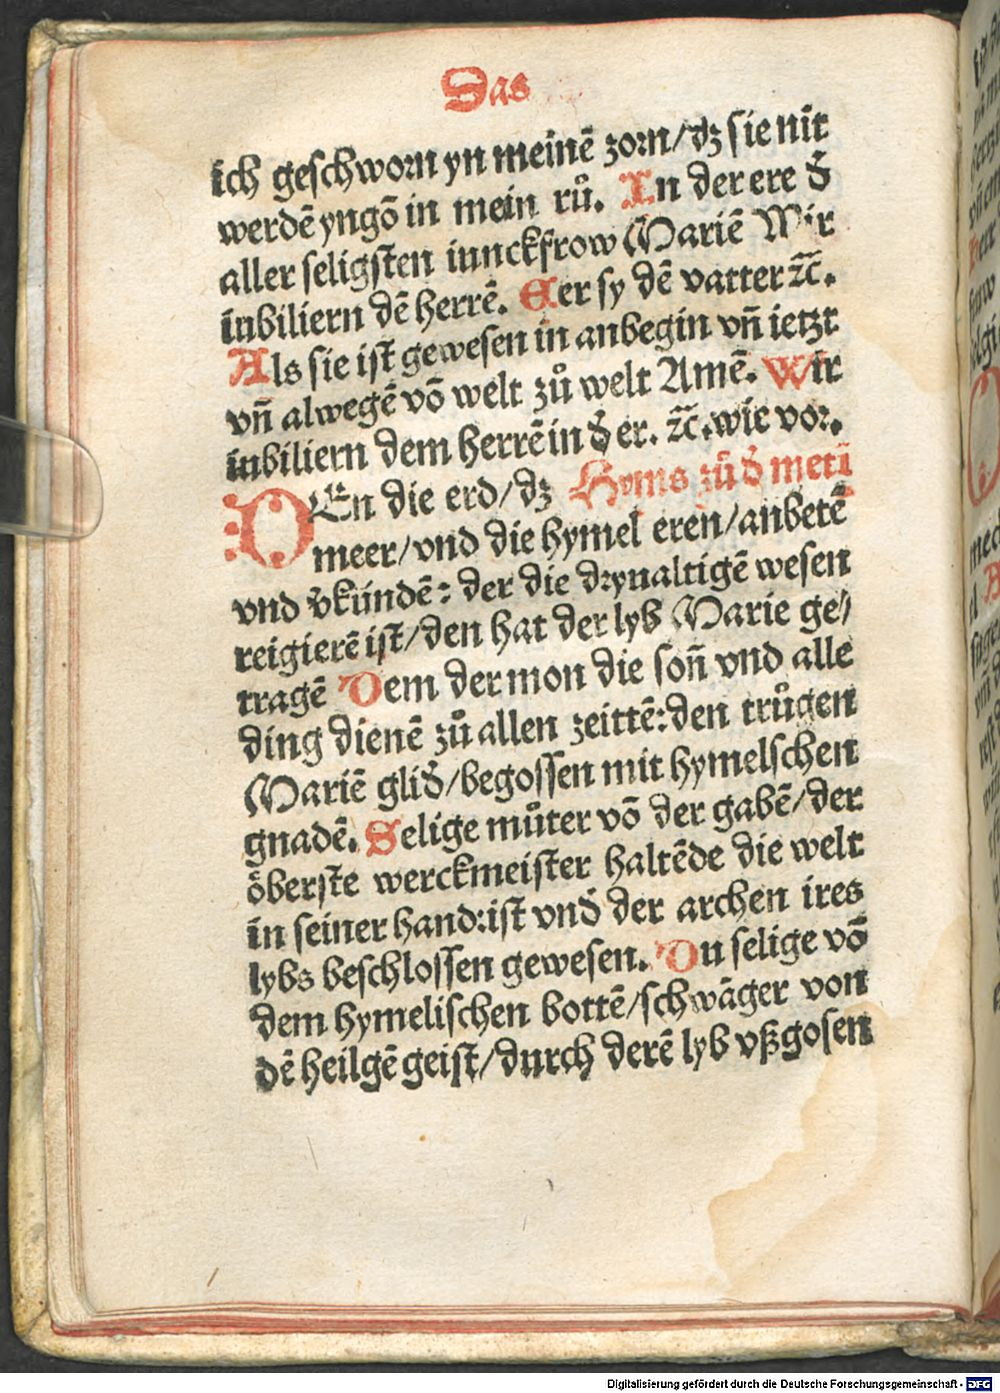 Das
ich geschworn yn meinē zorn/dz sie nit
werdē yngō in mein rů. In der ere d̄
aller seligsten iunckfrow Mariē Wir
iubiliern dē herrē. Eer sy dē vatter ⁊c̄.
Als sie ist gewesen in anbegin vn̄ ietzt
vn̄ alwegē vō welt zů welt Amē. Wir
iubiliern dem herrē in d̄ er. ⁊c̄. wie vor.
DEn die erd/dz Hyms zů d̄ meti
meer/vnd die hymel eren/anbetē
vnd v̄kündē: der die drynaltigē wesen
reigierē ist/den hat der lyb Marie ge⸗
tragē Dem der mon die son̄ vnd alle
ding dienē zů allen zeittē: den trůgen
Mariē glid̄/begossen mit hymelschen
gnadē. Selige můter vō der gabē/der
öberste werckmeister haltēde die welt
in seiner hand: ist vnd̄ der archen ires
lybs beschlossen gewesen. Du selige vō
dem hymelischen bottē/schwāger von
dē heilgē geist/durch derē lyb vßgosen
Digitalisierung gefördert durch die Deutsche Forschungsgemeinschaft - DFG